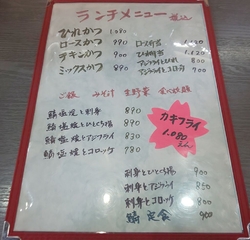 ランチメニュー 税込
ひれかつ 1,080
ロースかつ 990
チキンかつ 900
ミックスかつ 990
ロース弁当 1,120
ひれ弁当 1,120
アジフライとひれ 900
アジフライとコロッケ 700
ご飯 みそ汁 生野菜 食べ放題
鯖塩焼と刺身 890
鯖塩焼とひとくち揚 890
鯖塩焼とアジフライ 830
鯖塩焼とコロッケ 780
カキフライ
1,080
刺身とひとくち揚 900
刺身とアジフライ 850
刺身とコロッケ 800
鯖定食 900